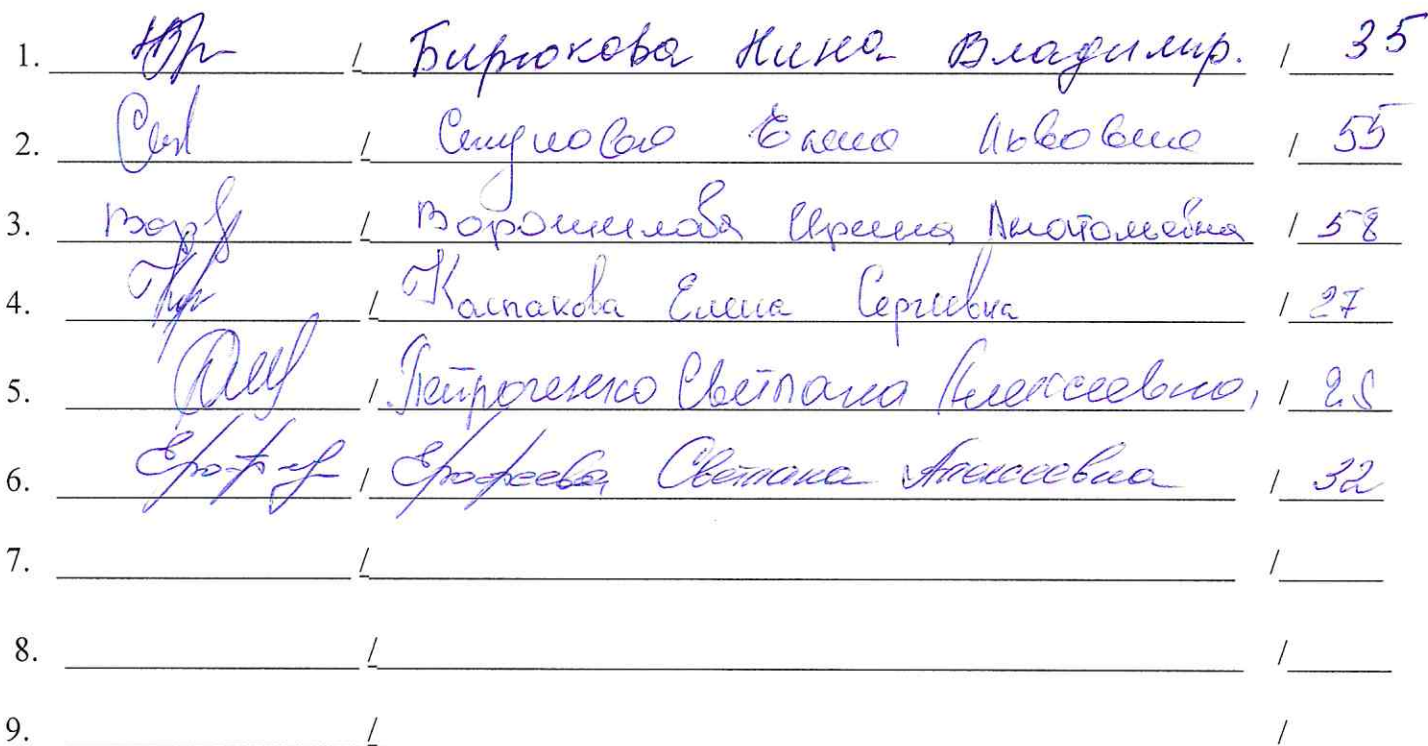 1. / Бирюкова Нина Владимир. / 35
2. / Елена Львовна / 55
3. / Ворошилова Ирина Анатольевна / 58
4. / Каспакова Елена Сергеевна / 27
5. / Петроченко Светлана Алексеевна, /
6. / Ерофеева Светлана Алексеевна / 32
7. / /
8. / /
9. / /